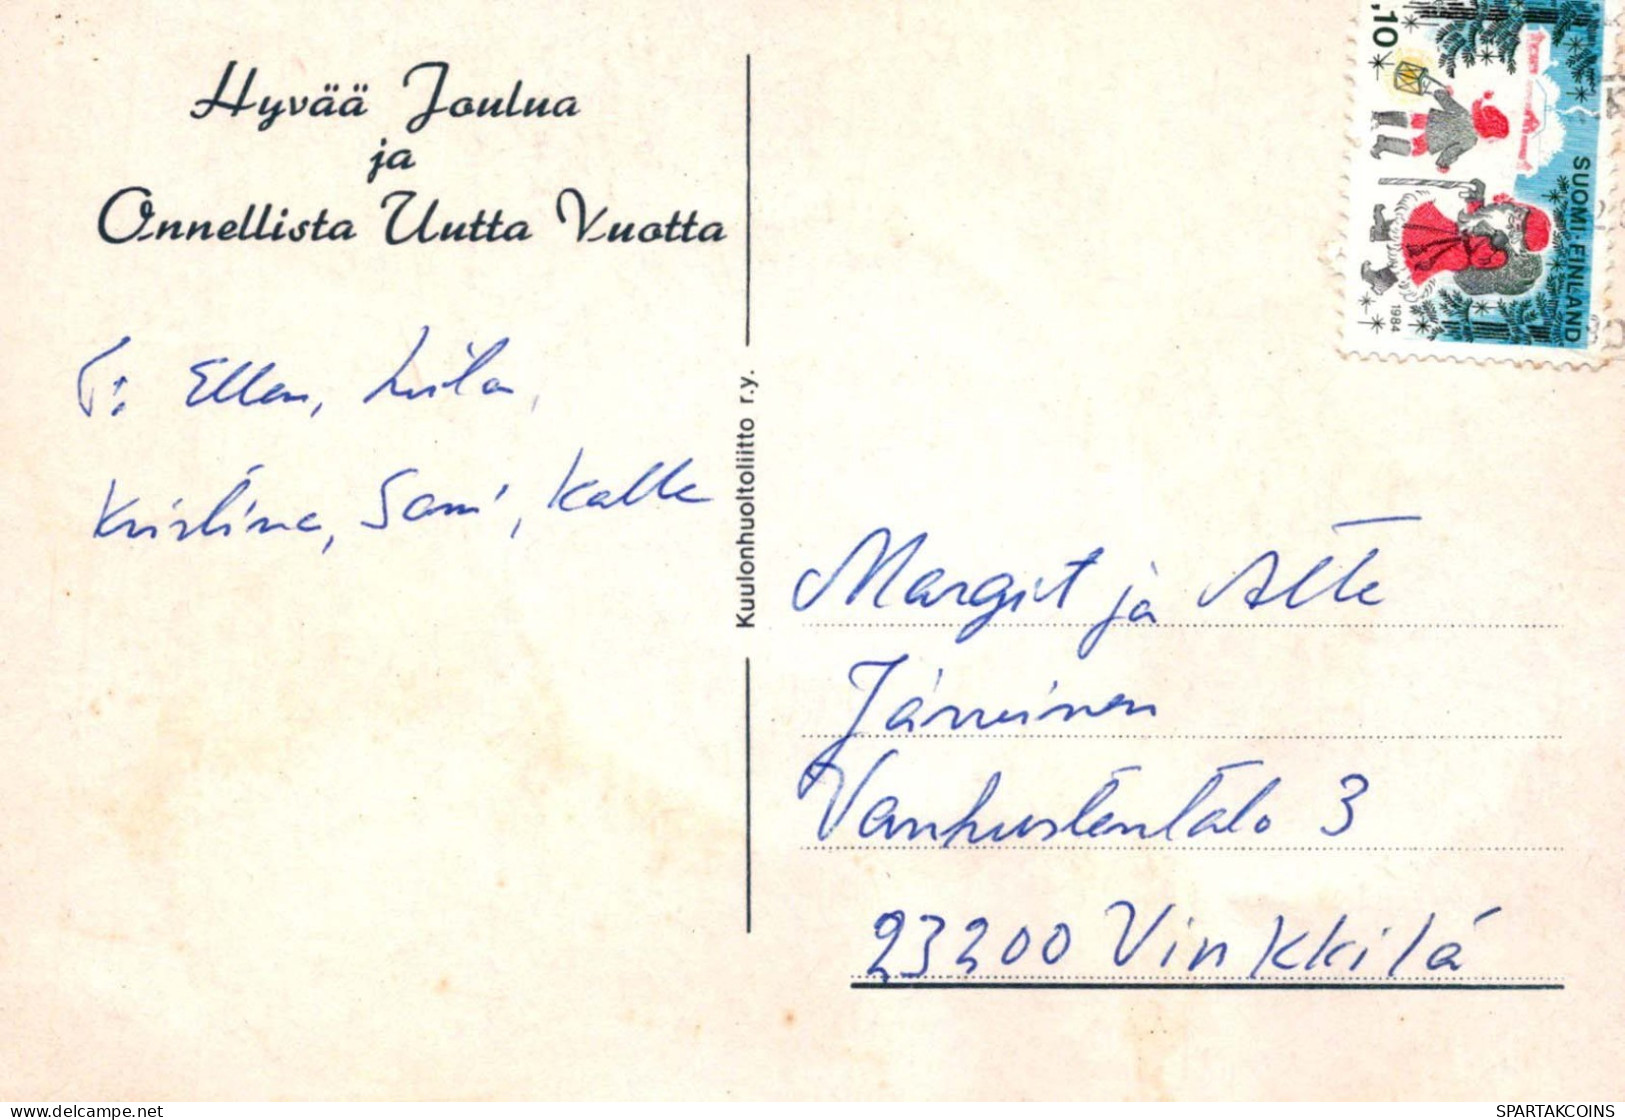 Hyvää Joulua
ja
Onnellista Uutta Vuotta
T: Ellen, Liila,
Kristiina, Sami, Kalle
Kuulonhuoltoliitto r.y.
,10
SUOMI·FINLAND
1984
Margit ja Atte
Järvinen
Vanhustentalo 3
23200 Vinkkilä
delcampe.net
SPARTAKCOINS